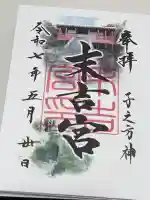 奉拝
子之方神
末吉宮
令和七年五月廿日